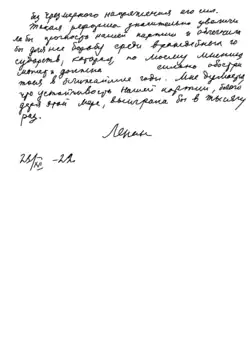 без чрезмерного напряжения его сил.
Такая реформа значительно увеличи
ла бы прочность нашей партии и облегчила
бы для нее борьбу среди враждебных го
сударств, которая по моему мнению
может и должна сильно обостри
ться в ближайшие годы. Мне думается
что устойчивость нашей партии, благо
даря этой мере, выиграла бы в тысячу
раз.
Ленин
23/XII -22.